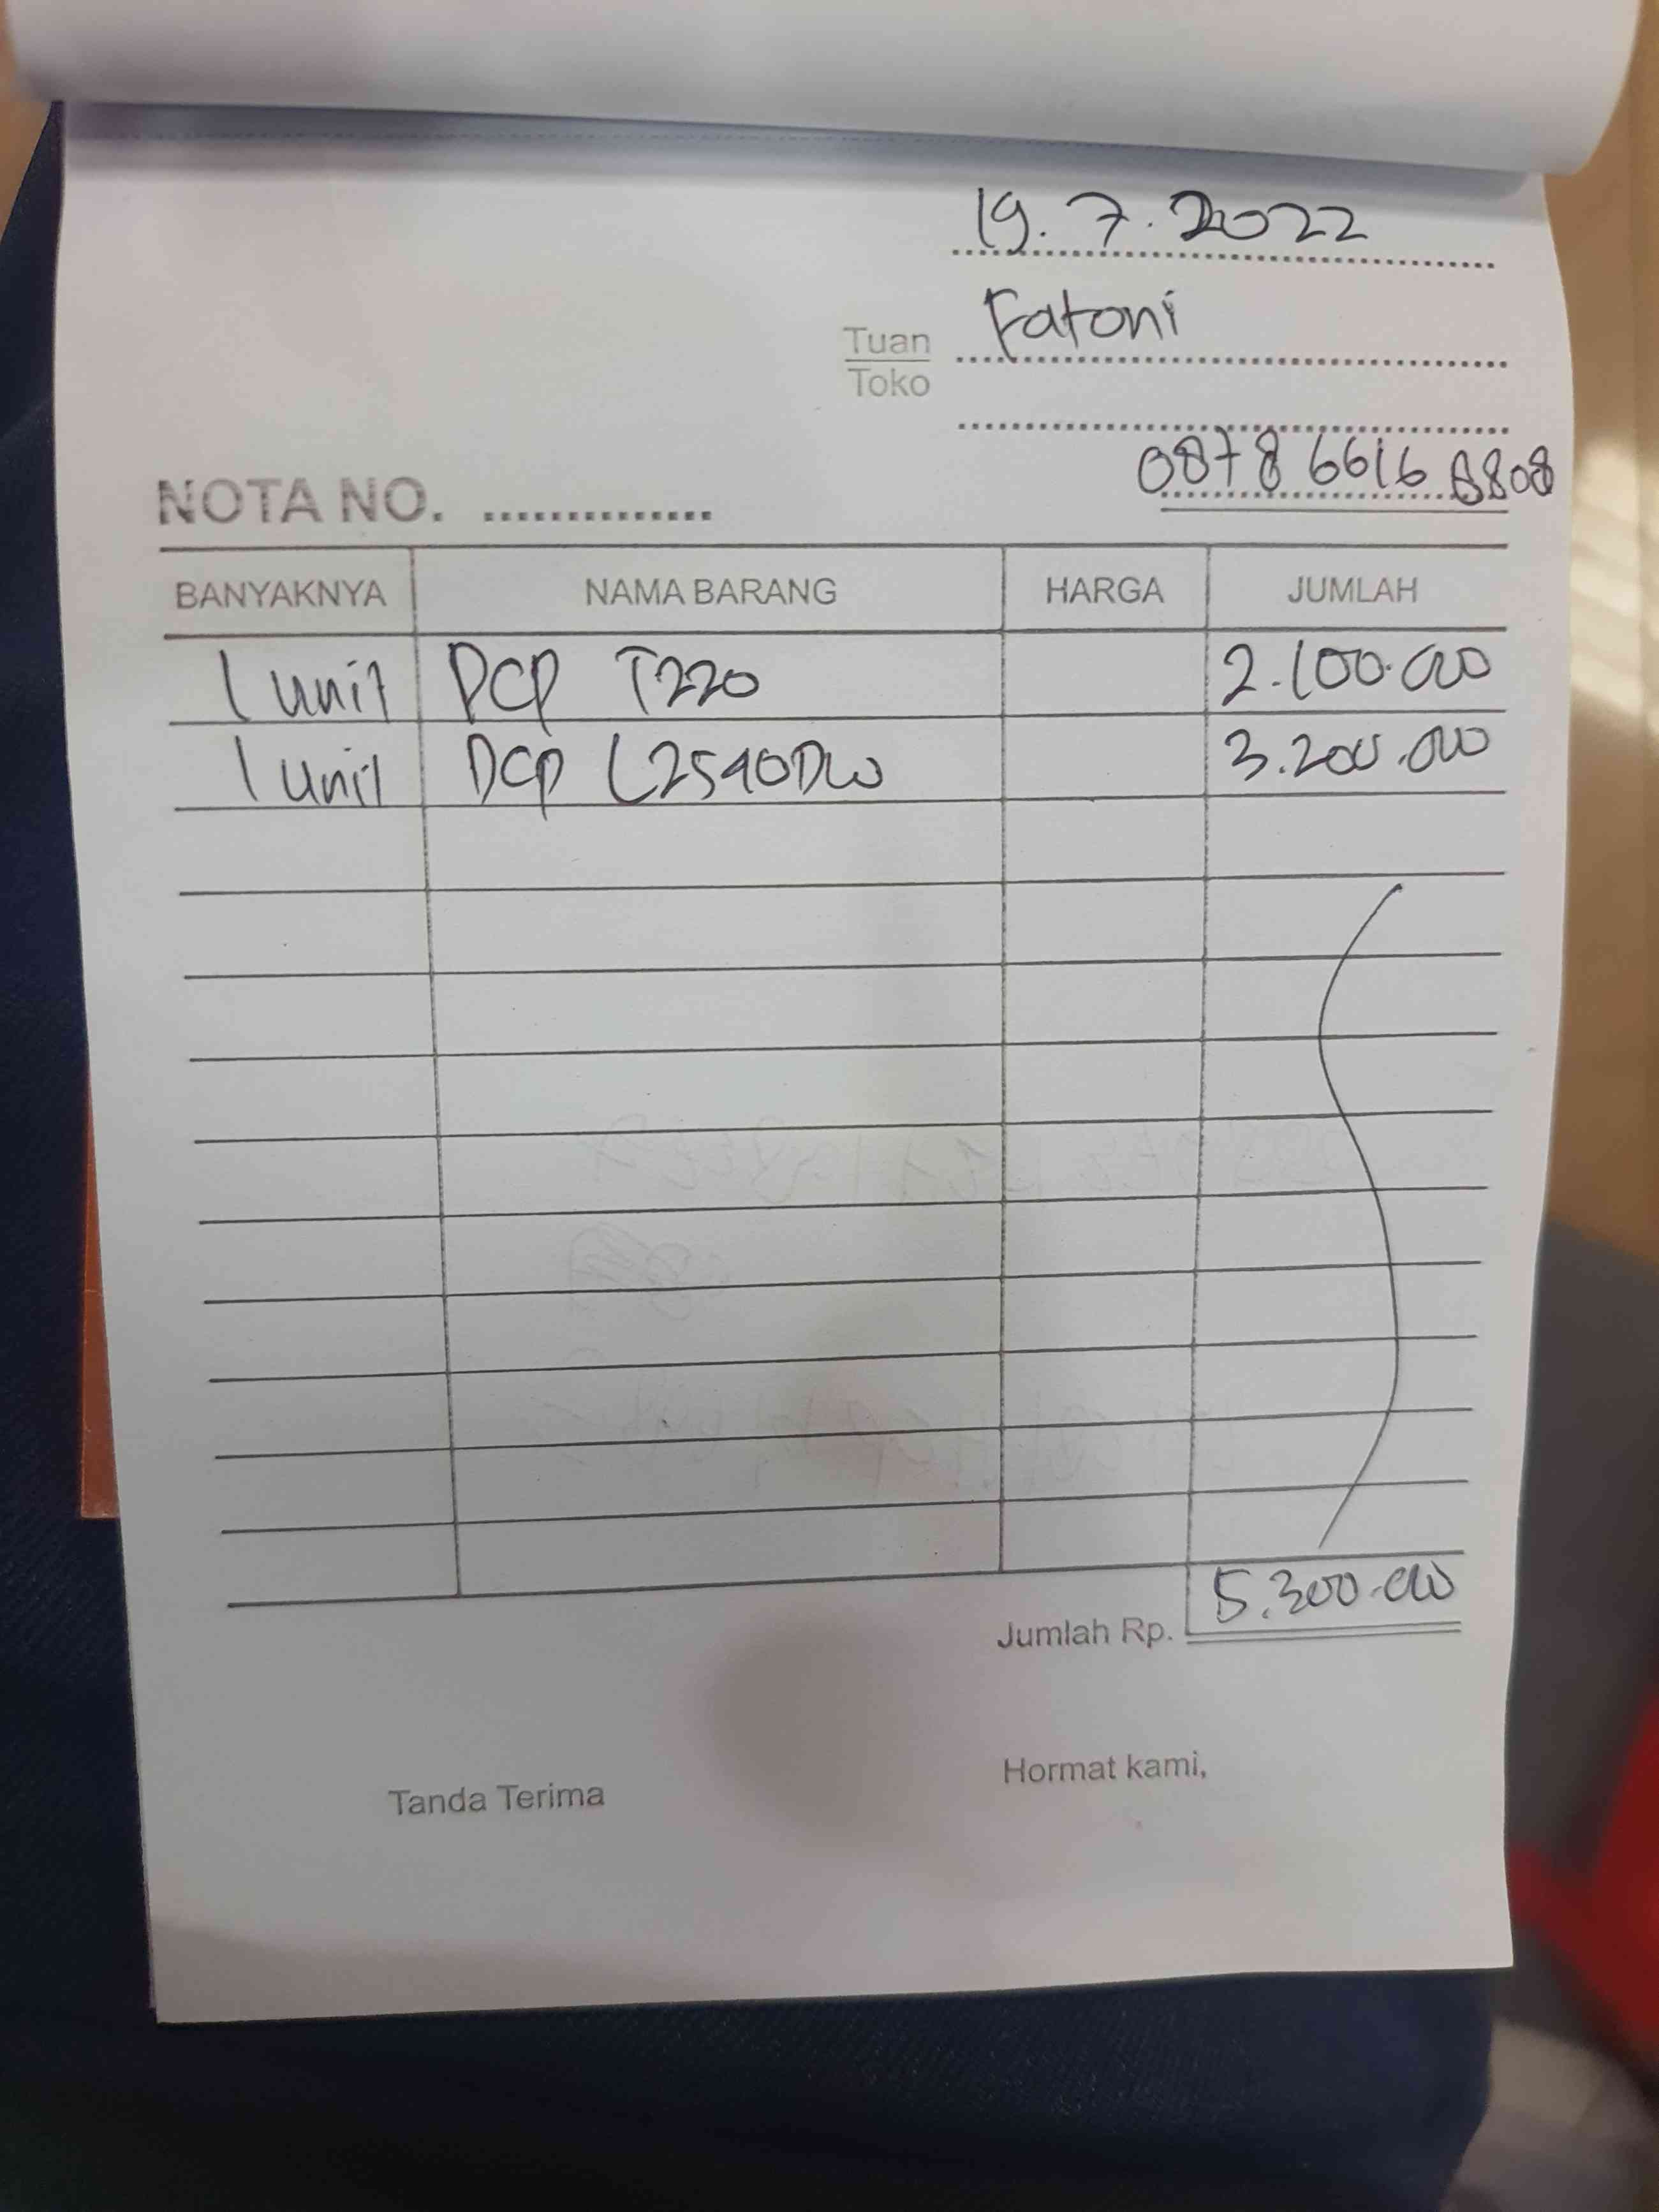 19.7.2022
Tuan Fatoni
Toko
0878 6616 8808
NOTA NO. ..............
BANYAKNYA NAMA BARANG HARGA JUMLAH
1 unit DCP T220 2.100.000
1 unit DCP L2540DW 3.200.000
Jumlah Rp. 5.300.000
Tanda Terima Hormat kami,